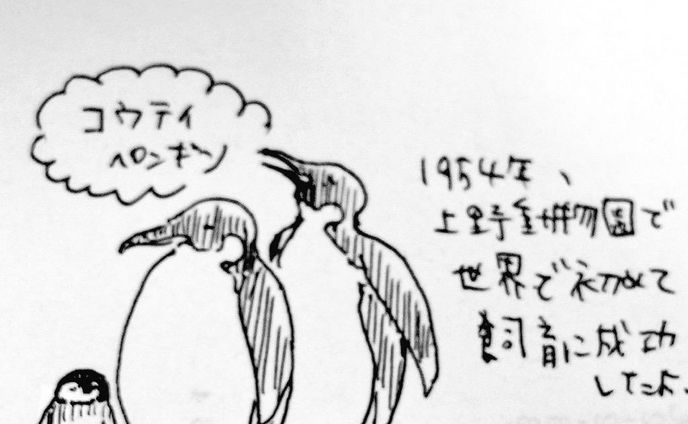 コウテイ
ペンギン
1954年、
上野動物園で
世界で初めて
飼育に成功
したよ。